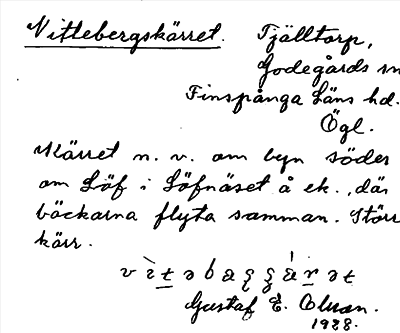 Vittebergskärret. Tjälltorp,
Godegårds sn
Finspånga Läns hd.
Ögl.
Kärret n. v. om byn söder
om Löf i Löfnäset å ek., där
bäckarna flyta samman. Större
kärr.
Gustaf E. Olsson.
1928.